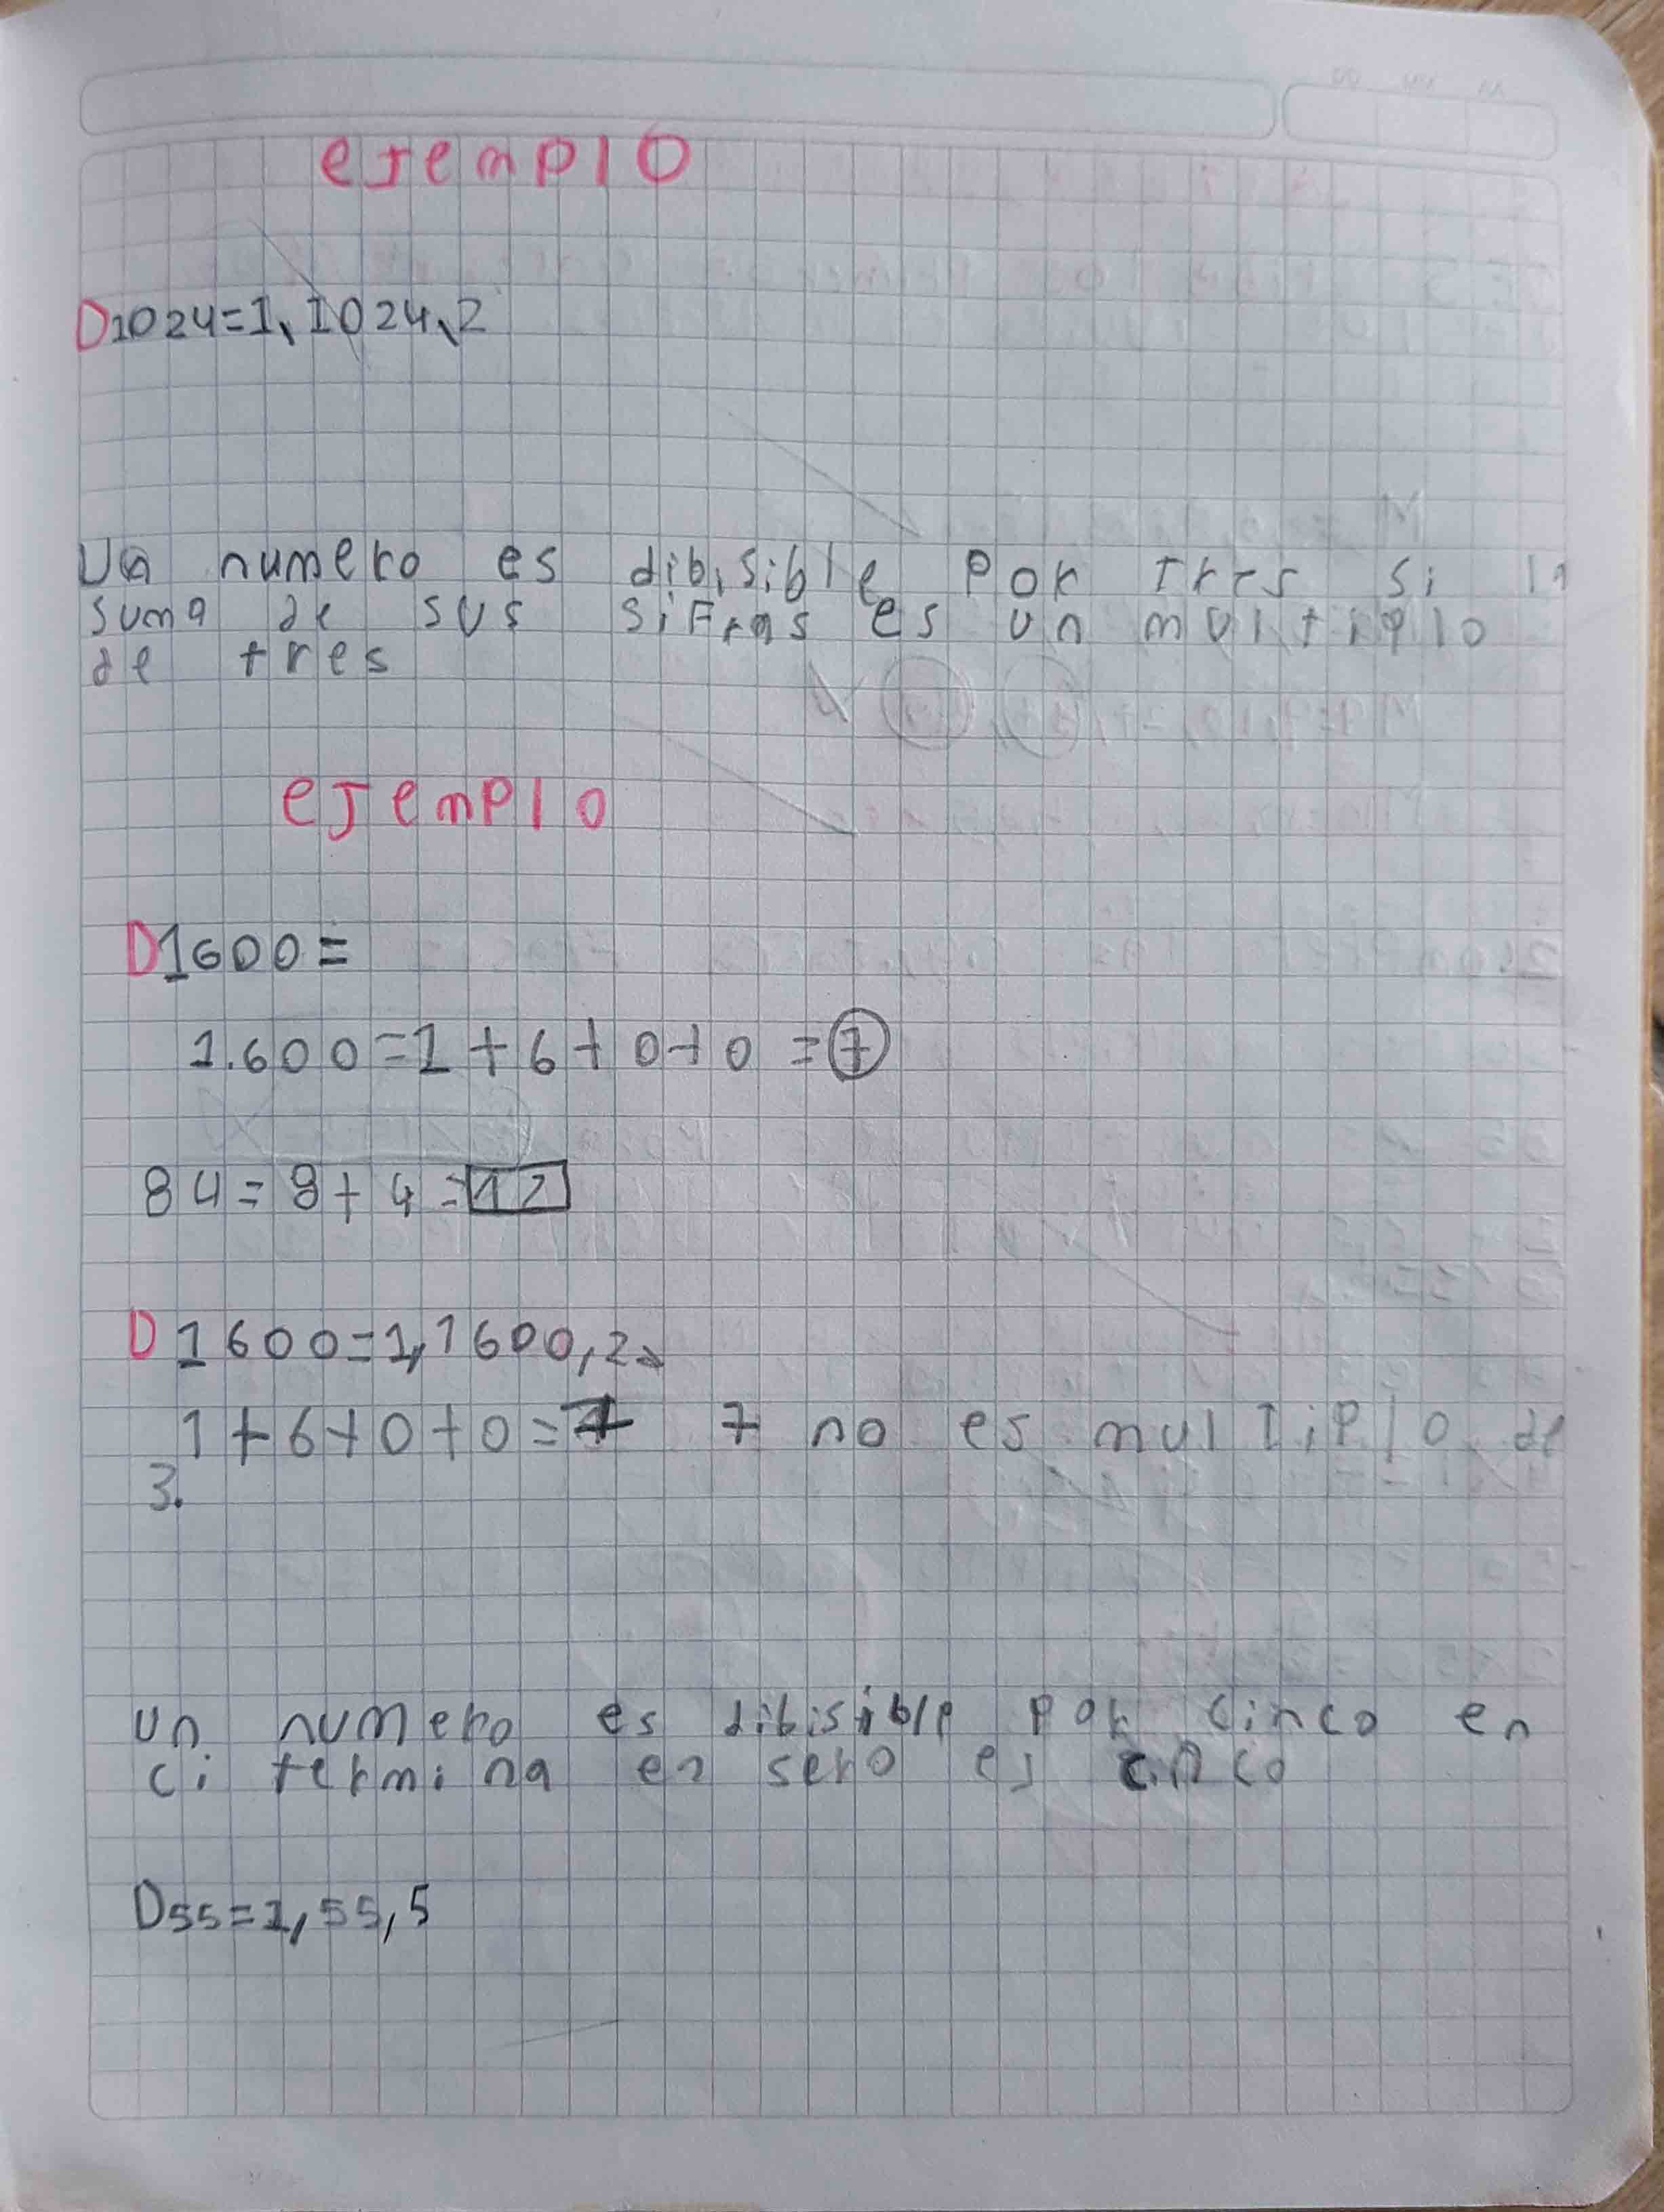 eJemplo
D1024=1,1024,2
Un numero es dibisible por tres si la
suma de sus sifras es un multiplo
de tres
eJemplo
D1600=
1.600=1+6+0+0=7
84=8+4=12
D1600=1,1600,2
1+6+0+0=7 7 no es multiplo de
3.
un numero es dibisible por cinco en
ci termina en sero es cinco
D55=1,55,5